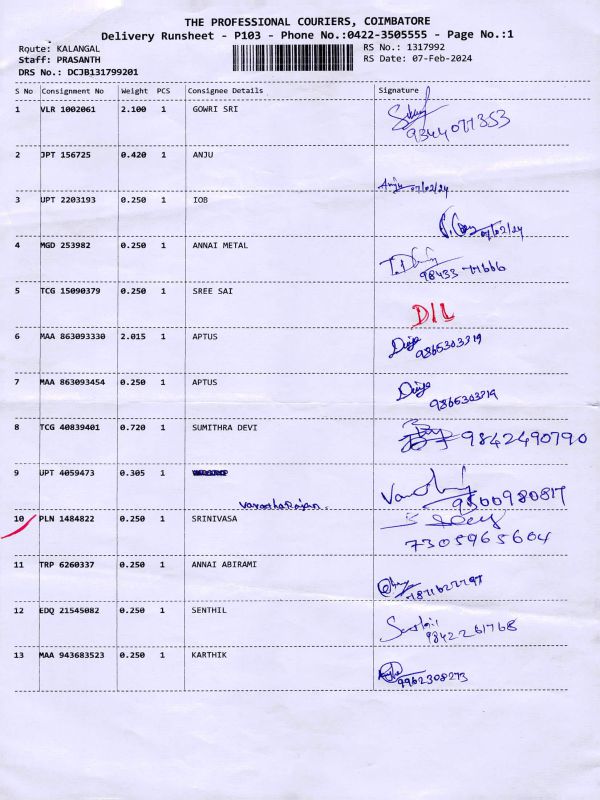 THE PROFESSIONAL COURIERS, COIMBATORE
Delivery Runsheet - P103 - Phone No.:0422-3505555 - Page No.:1
Route: KALANGAL RS No.: 1317992
Staff: PRASANTH RS Date: 07-Feb-2024
DRS No.: DCJB131799201
S No Consignment No Weight PCS Consignee Details Signature
1 VLR 1002061 2.100 1 GOWRI SRI
9344077353
2 JPT 156725 0.420 1 ANJU
Anju 07/02/24
3 UPT 2203193 0.250 1 IOB
07/02/24
4 MGD 253982 0.250 1 ANNAI METAL
5 TCG 15090379 0.250 1 SREE SAI
D/L
6 MAA 863093330 2.015 1 APTUS
9865303819
7 MAA 863093454 0.250 1 APTUS
9865303819
8 TCG 40839401 0.720 1 SUMITHRA DEVI
9842490790
9 UPT 4059473 0.305 1
VarathaRajan. 9500980817
10 PLN 1484822 0.250 1 SRINIVASA
7305965604
11 TRP 6260337 0.250 1 ANNAI ABIRAMI
12 EDQ 21545082 0.250 1 SENTHIL
9842261768
13 MAA 943683523 0.250 1 KARTHIK
9962308273